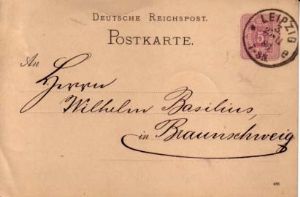 DEUTSCHE REICHSPOST.
POSTKARTE.
LEIPZIG
An
Herrn
Wilhelm Basilius
in Braunschweig